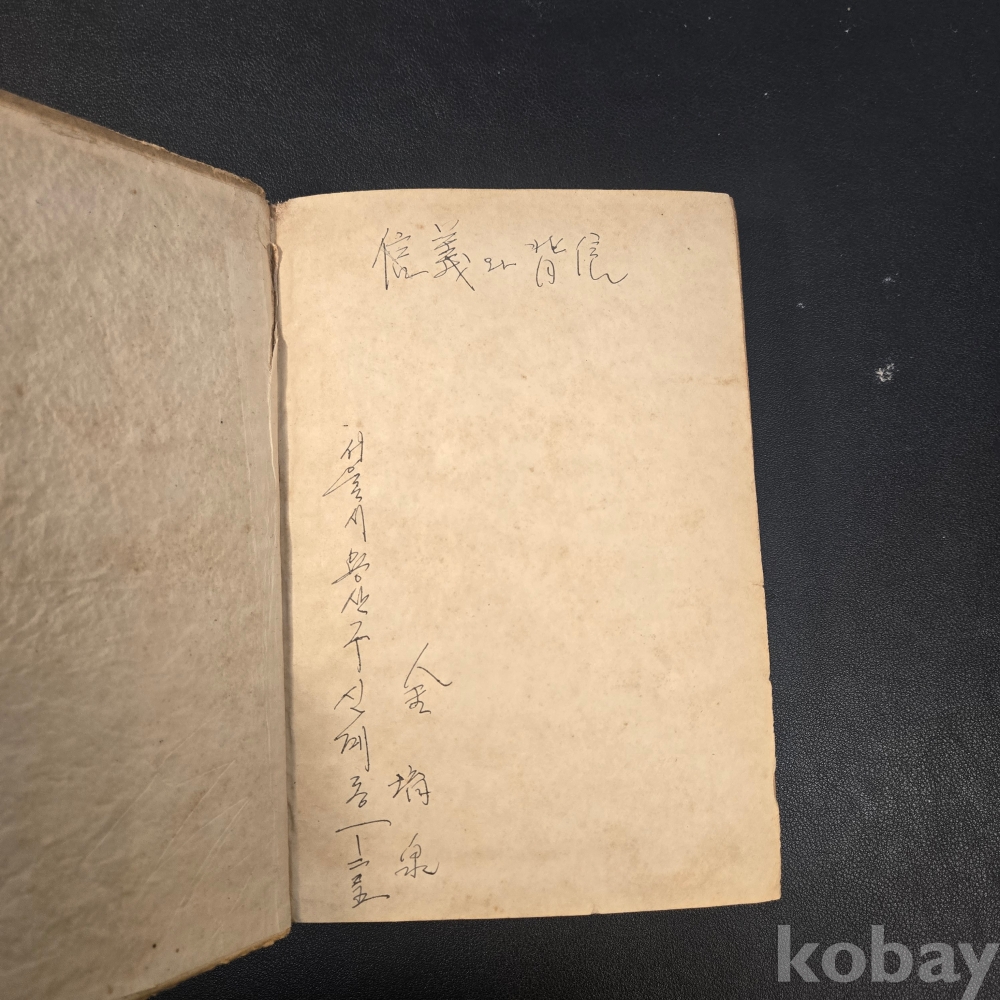 信義와 背信
서울시 용산구 신계동 一-二五
金 埇 泉
kobay